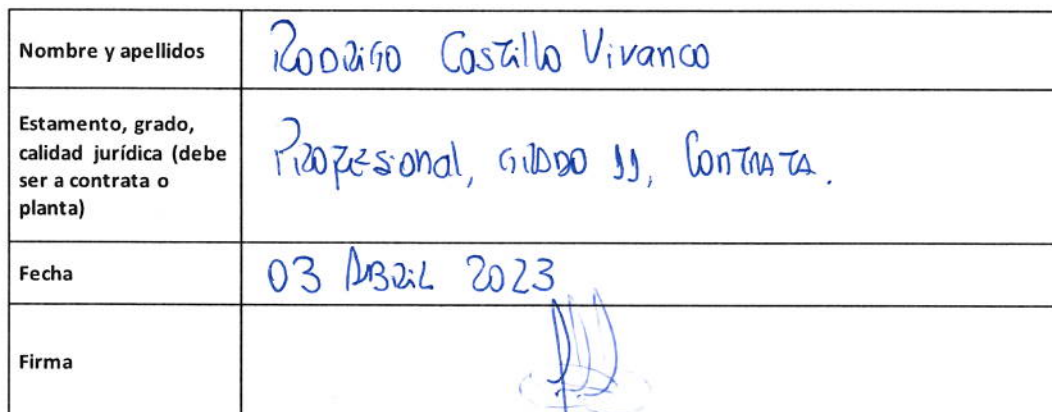 Nombre y apellidos
Rodrigo Castillo Vivanco
Estamento, grado,
calidad jurídica (debe
ser a contrata o
planta)
Profesional, GRADO 11, Contrata.
Fecha
03 ABRiL 2023
Firma